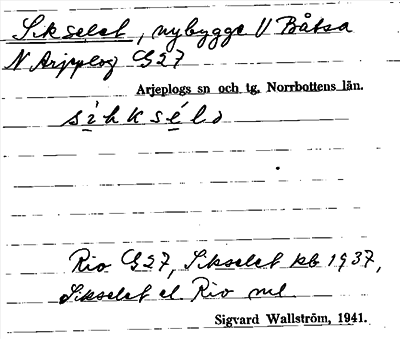 Sikselet, nybygge V Båtsa
N Arjeplog G27
Arjeplogs sn och tg. Norrbottens län.
sìhksélɔ
Rio G27, Sikselet kb 1937,
Sikselet el. Rio ml.
Sigvard Wallström, 1941.